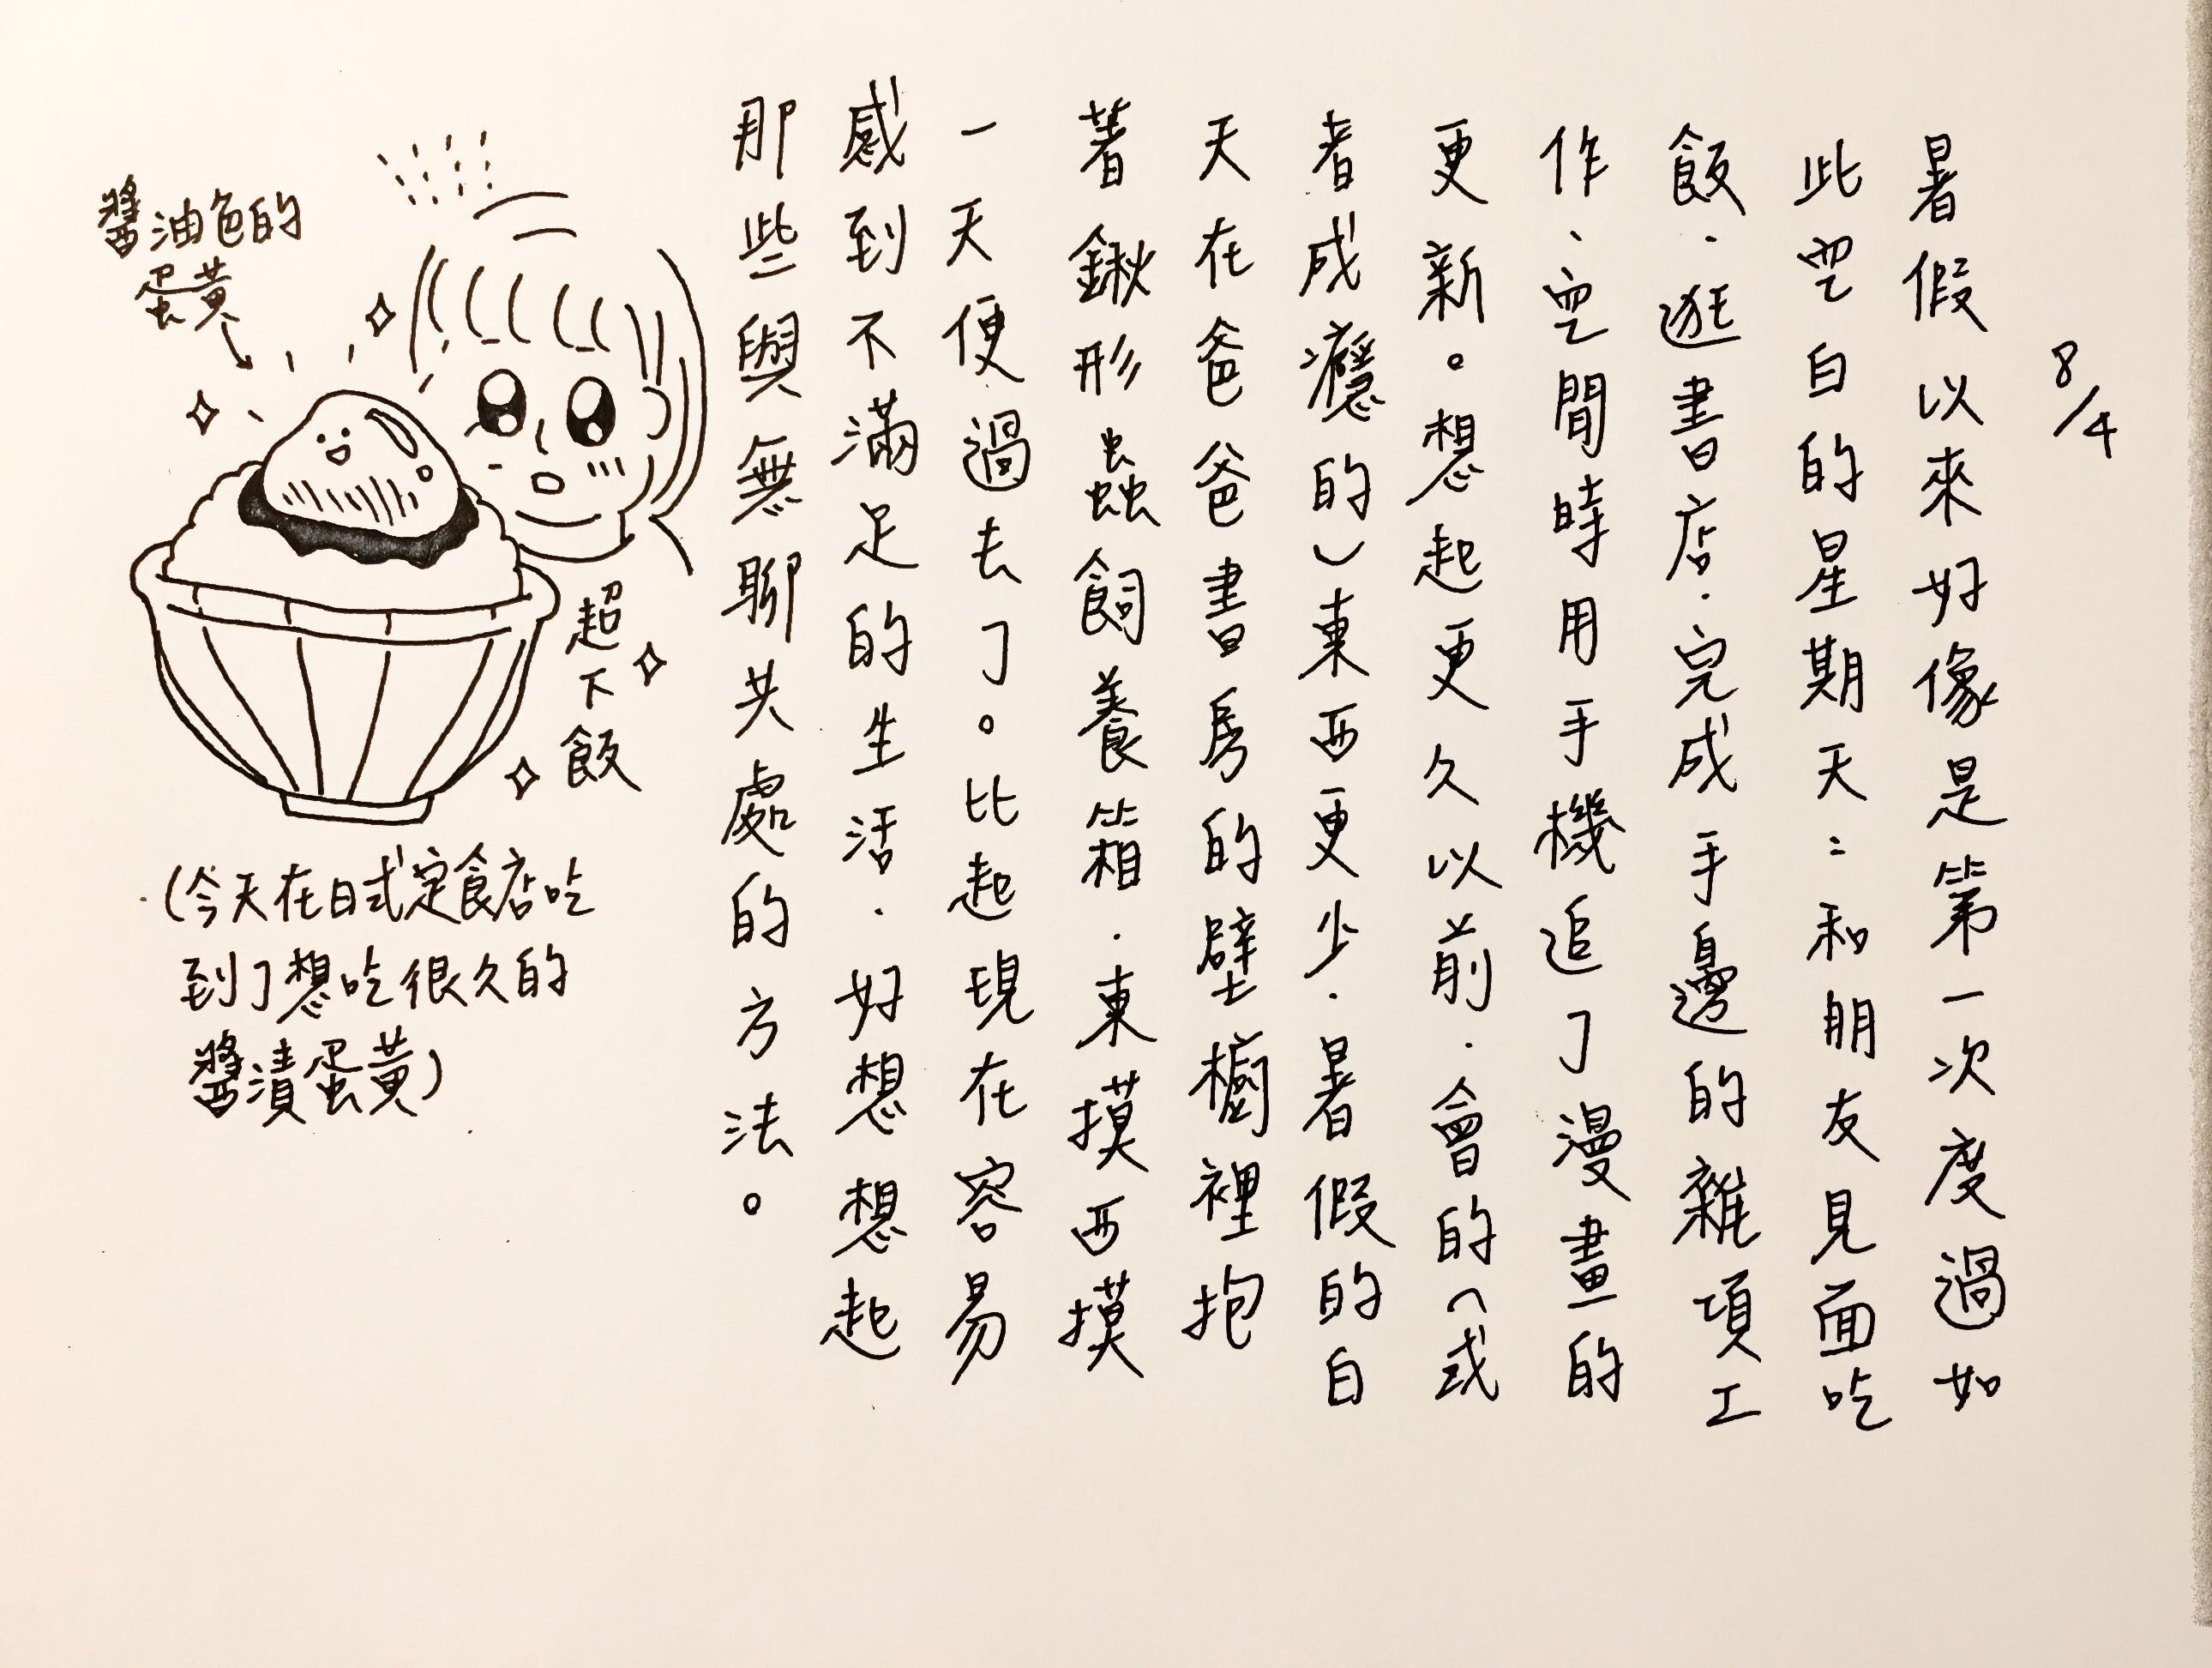 8/4
暑假以來好像是第一次度過如
此空白的星期天：和朋友見面吃
飯．逛書店．完成手邊的雜項工
作、空閒時用手機追了漫畫的
更新。想起更更久以前．會的（或
者成癮的）東西更少．暑假的白
天在爸爸書房的壁櫥裡抱
著鍬形蟲飼養箱．東摸西摸
一天便過去了。比起現在容易
感到不滿足的生活．好想想起
那些與無聊共處的方法。
醬油色的
蛋黃
超下飯
(今天在日式定食店吃
到了想吃很久的
醬漬蛋黃)